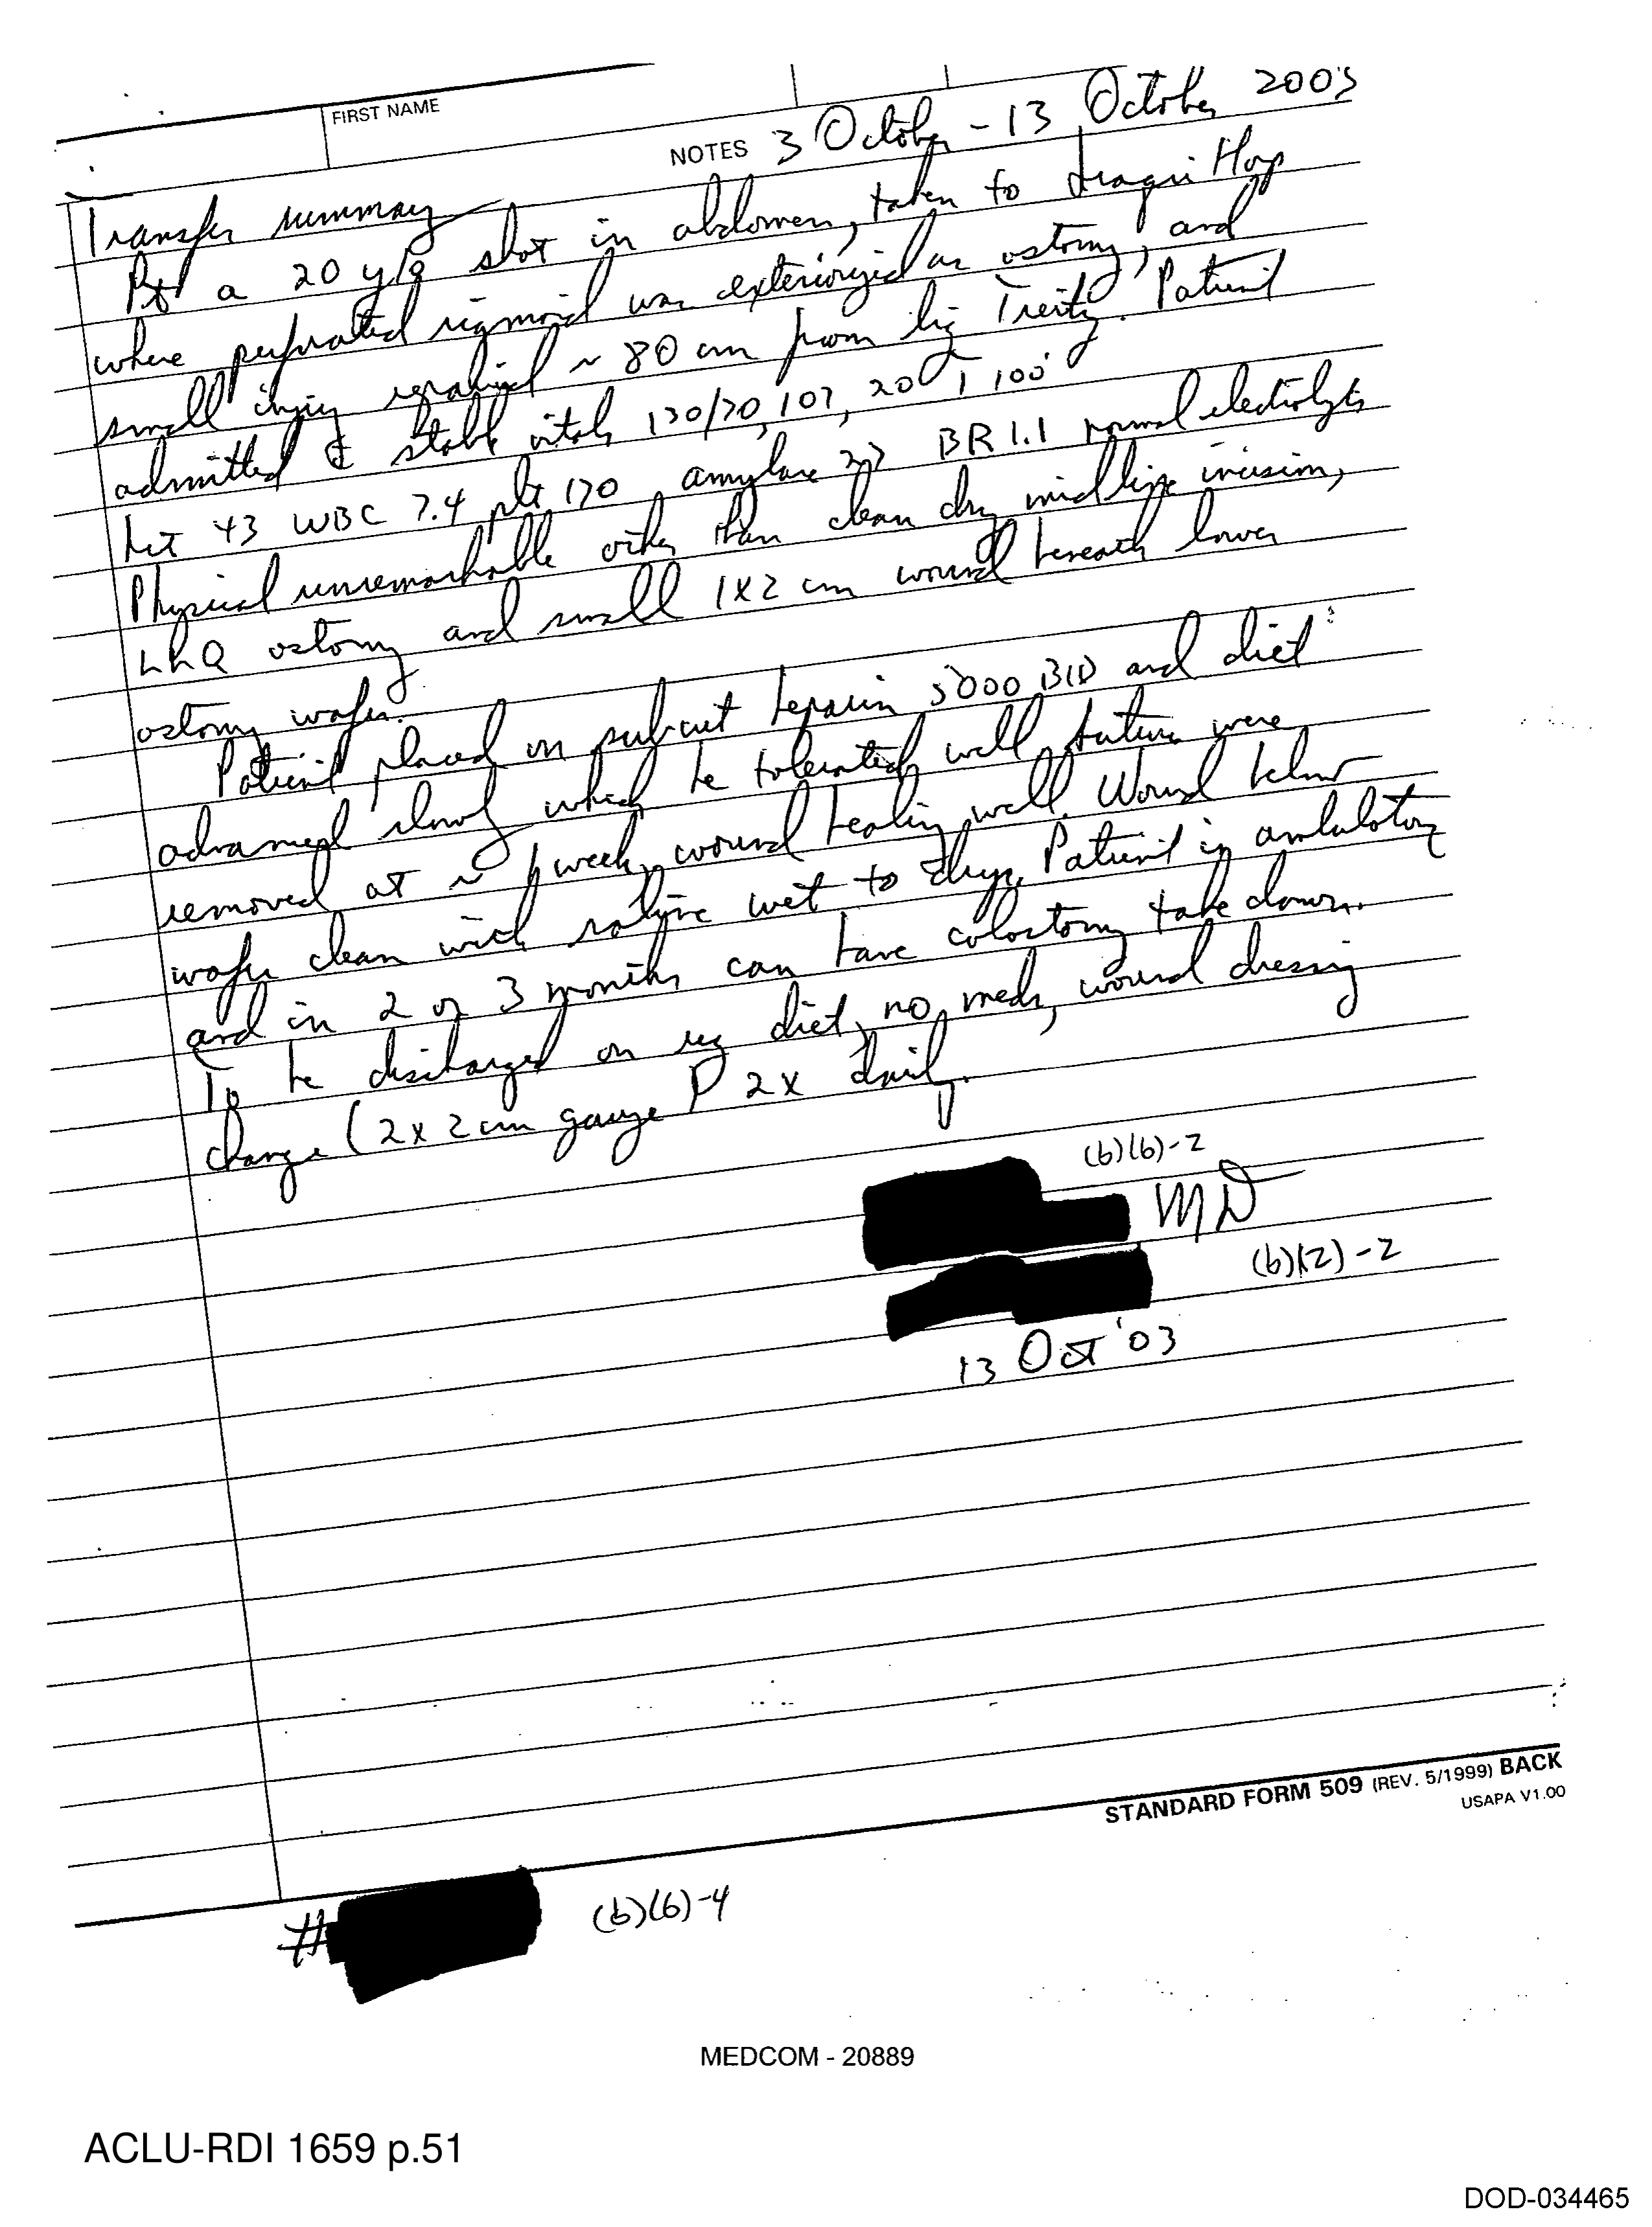 FIRST NAME
NOTES 3 October - 13 October 2003
Transfer summary
Pt a 20 y/o shot in abdomen, taken to Iraqi Hosp
where perforated sigmoid was exteriorized as ostomy, and
small injury repaired ~ 80 cm from lig Treitz. Patient
admitted c stable vitals 130/70, 107, 20, T 100
hct 43 WBC 7.4 plt 170 amylase 27 BR 1.1 normal electrolytes
Physical unremarkable other than clean dry midline incision,
ostomy and small 1x2 cm wound beneath lower
ostomy wafer.
Patient placed on subcut heparin 5000 BID and diet
advanced slowly which he tolerated well. Sutures were
removed at ~ 1 week, wound healing well. Wound below
wafer clean with saline wet to drys. Patient is ambulatory
and in 2 or 3 months can have colostomy take down.
To be discharged on reg diet, no meds, wound dressing
change (2x2 cm gauze) 2x daily.
(b)(6)-2
MD
(b)(2)-2
13 Oct '03
STANDARD FORM 509 (REV. 5/1999) BACK
USAPA V1.00
# (b)(6)-4
MEDCOM - 20889
ACLU-RDI 1659 p.51
DOD-034465